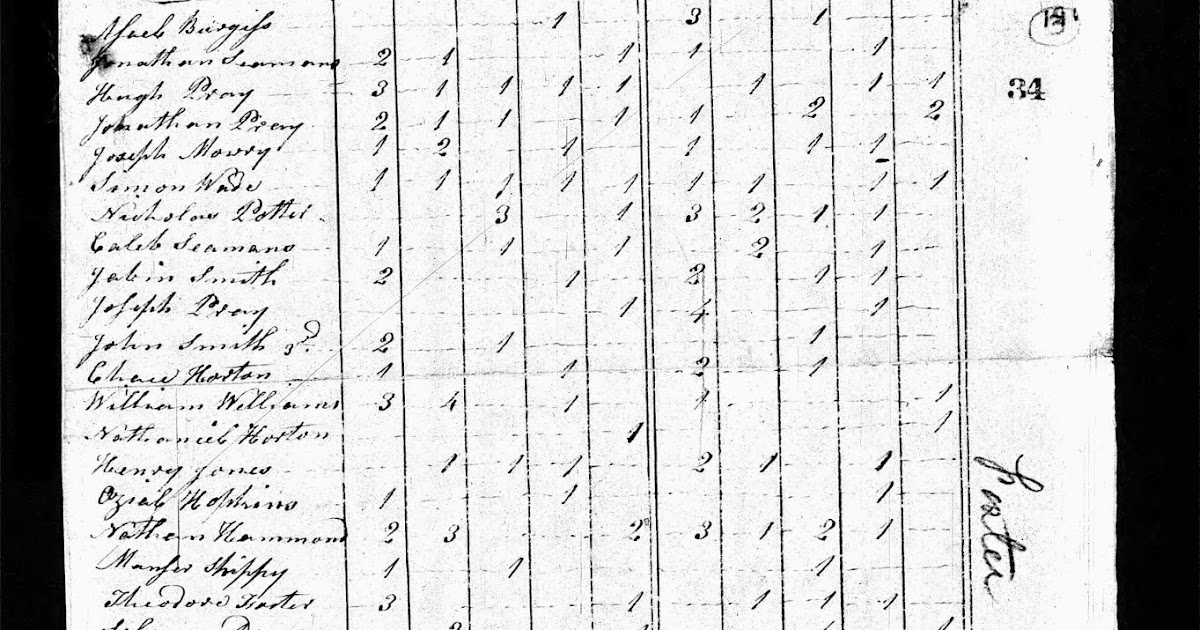 Asaeb Burgiss 1 3 1
Jonathan Seamans 2 1 1 1 1
Hugh Pray 3 1 1 1 1 1 1 1
Jonathan Pray 2 1 1 1 1 2 2
Joseph Mowry 1 2 1 1 1 1
Simon Wade 1 1 1 1 1 1 1 1 1
Nicholas Potter 3 1 3 2 1 1
Caleb Seamans 1 1 1 2 1
Jabin Smith 2 1 2 1 1
Joseph Pray 1 4 1
John Smith 3d. 2 1 1
Chace Horton 1 1 2 1
William Williams 3 4 1 1 1
Nathanieb Horton 1 1
Henry Jones 1 1 1 2 1 1
Oziab Hopkins 1 1 1
Nathan Hammond 2 3 2 3 1 2 1
Manser Shippy 1 1 1
Theodore Foster 3 1 1 1 1
34
Foster